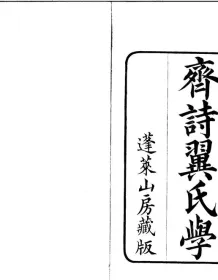 齊詩翼氏學
蓬萊山房藏版